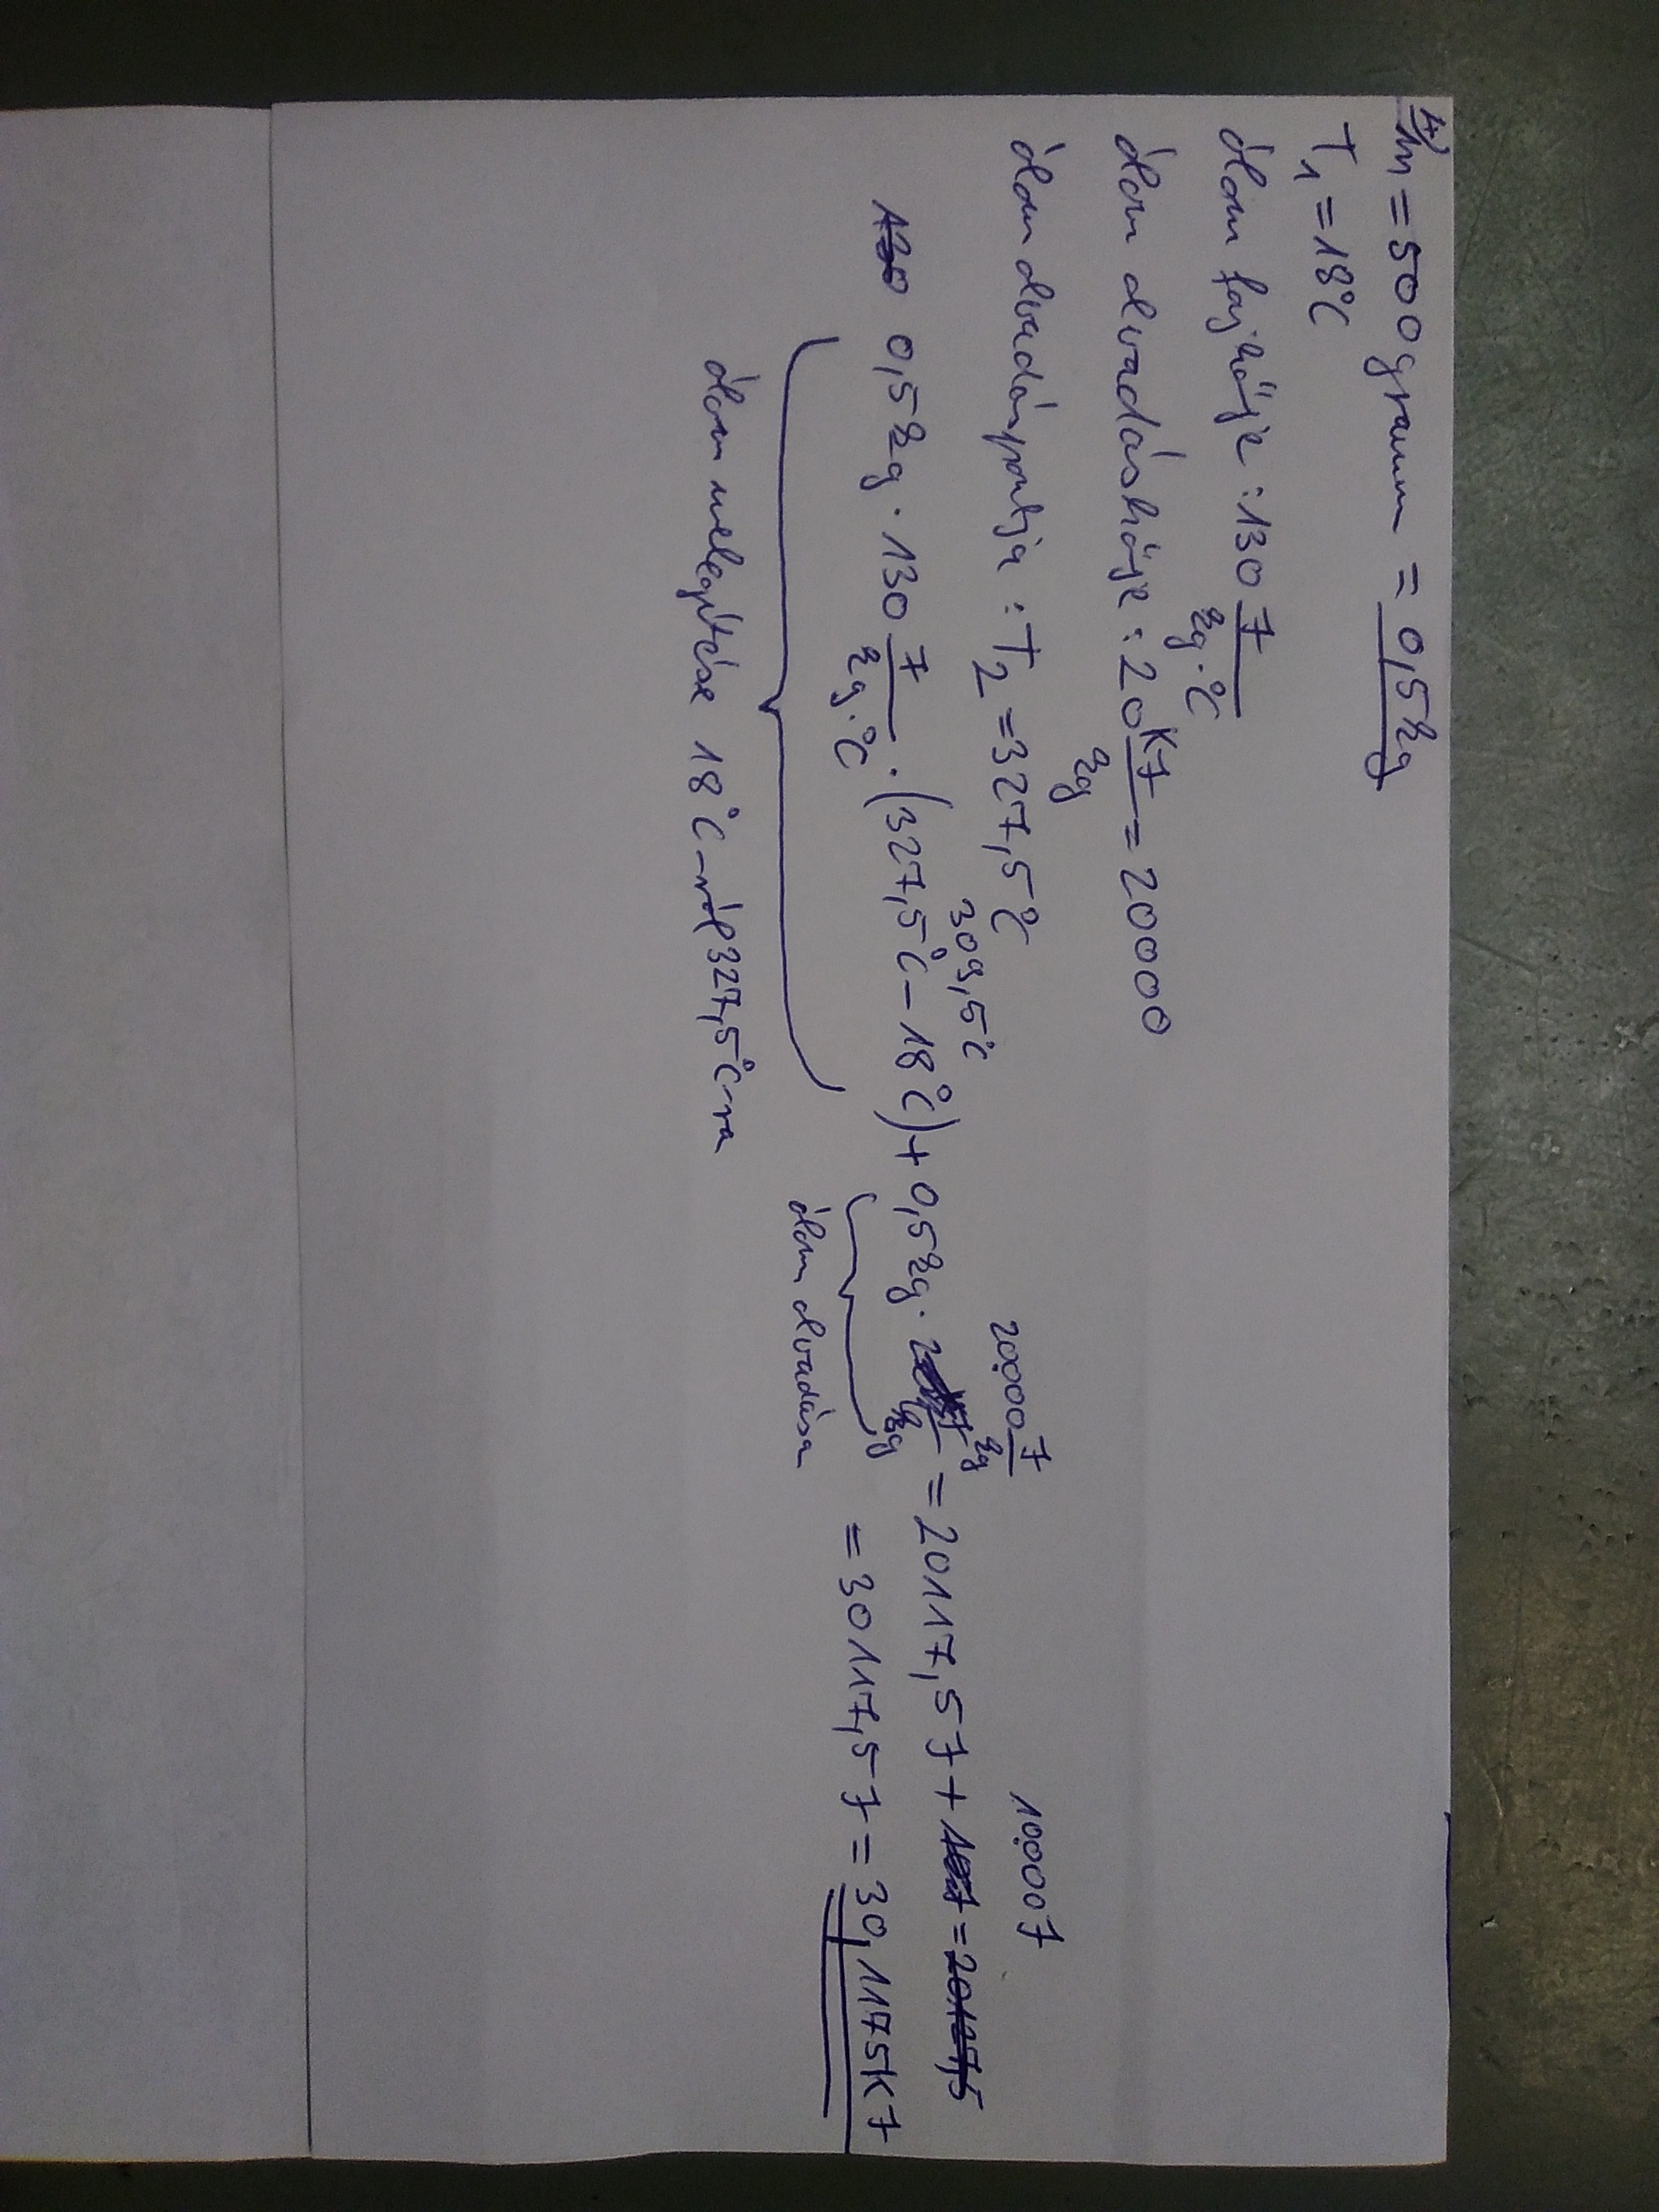 4) m = 500 gramm = 0,5 kg
T1 = 18°C
ólom fajhője : 130 J/kg·°C
ólom olvadáshője : 20 KJ/kg = 20000
ólom olvadáspontja : T2 = 327,5°C
309,5°C 20000 J/kg 10000 J
0,5 kg · 130 J/kg·°C · (327,5°C - 18°C) + 0,5 kg · = 20117,5 J +
= 30117,5 J = 30,1175 KJ
ólom melegítése 18°C-ról 327,5°C-ra
ólom olvadása